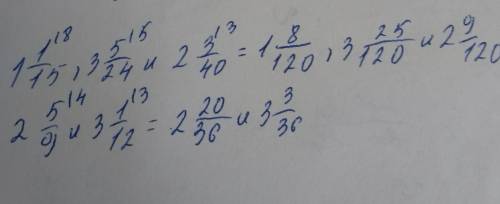 1 1/15 ^18, 3 5/24 ^15 и 2 3/40 ^13 = 1 8/120, 3 25/120 и 2 9/120
2 5/9 ^14 и 3 1/12 ^13 = 2 20/36 и 3 3/36